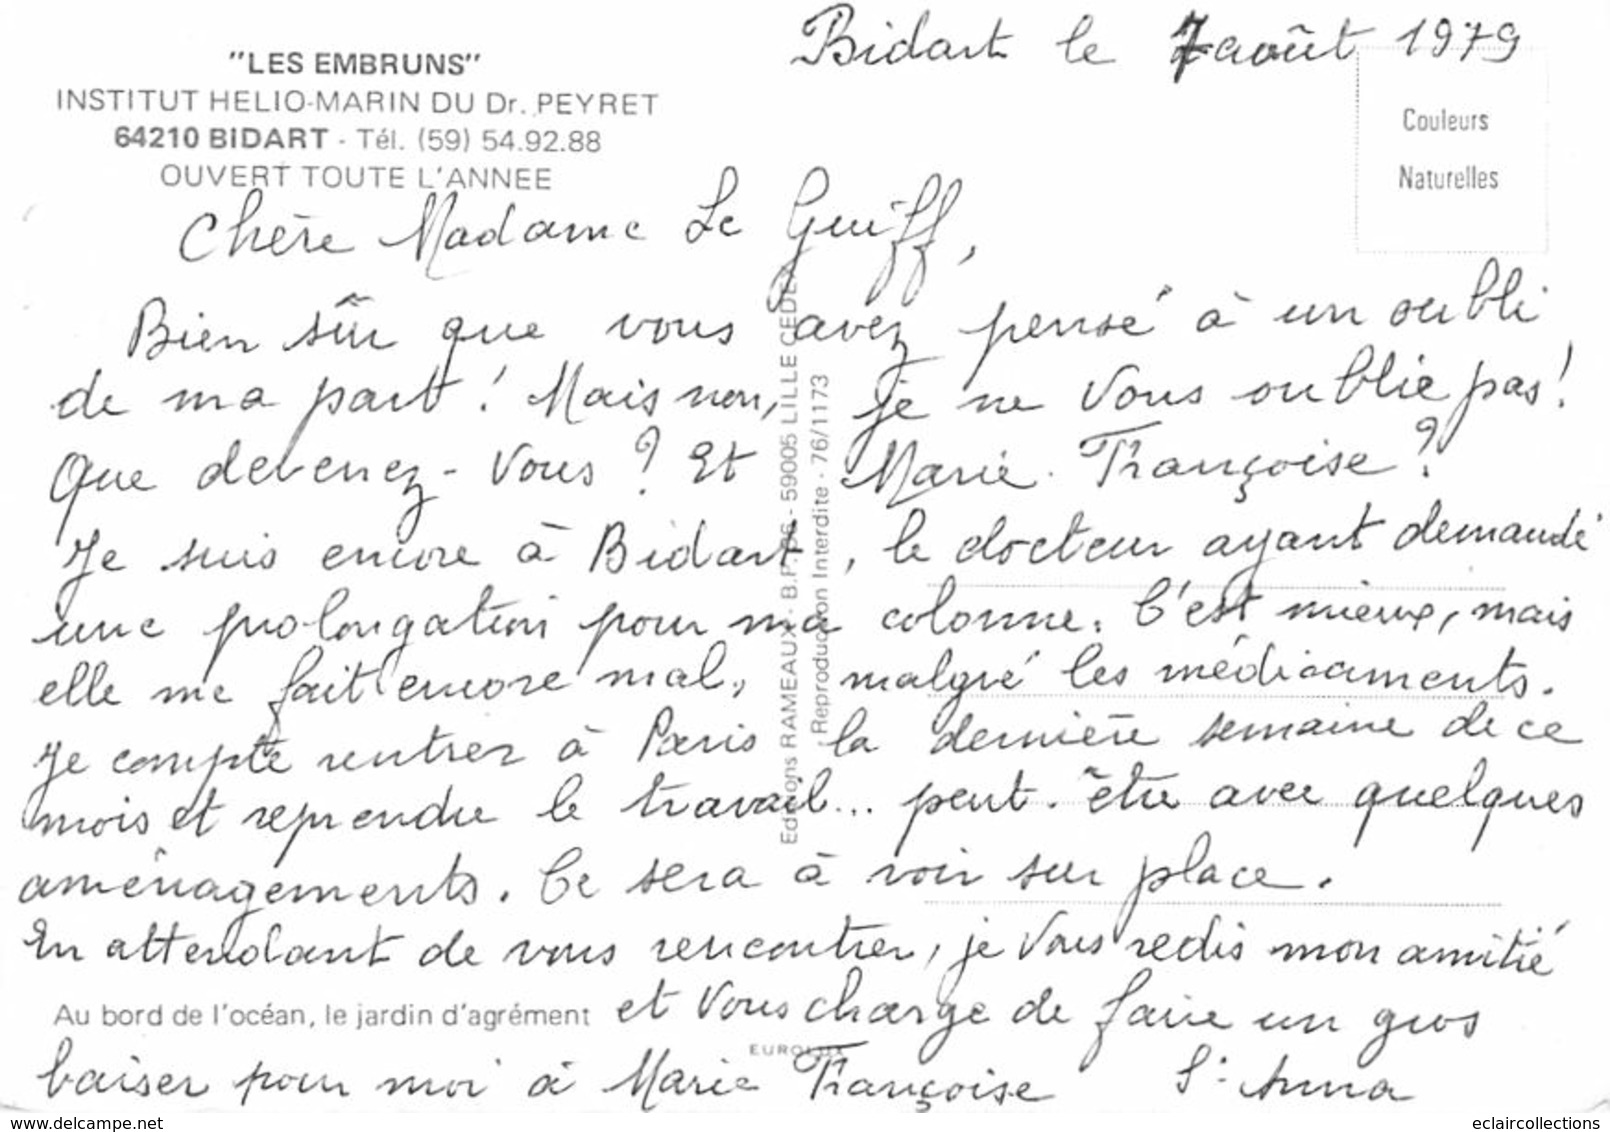 Bidart le 7 août 1979
"LES EMBRUNS"
INSTITUT HELIO-MARIN DU Dr. PEYRET
64210 BIDART - Tél. (59) 54.92.88
OUVERT TOUTE L'ANNEE
Couleurs
Naturelles
Chère Madame Le Guiff,
Bien sûr que vous avez pensé à un oubli
de ma part ! Mais non, je ne vous oublie pas !
Que devenez-vous ? Et Marie-Françoise ?
Je suis encore à Bidart, le docteur ayant demandé
une prolongation pour ma colonne. C'est mieux, mais
elle me fait encore mal, malgré les médicaments.
Je compte rentrer à Paris la dernière semaine de ce
mois et reprendre le travail... peut-être avec quelques
aménagements. Ce sera à voir sur place.
En attendant de vous rencontrer, je vous redis mon amitié
et vous charge de faire un gros
baiser pour moi à Marie Françoise Sr Anna
Au bord de l'océan, le jardin d'agrément
EUROLUX
Editions RAMEAUX - B.P. - 59005 LILLE CEDEX
Reproduction Interdite - 76/1173
www.delcampe.net
eclaircollections